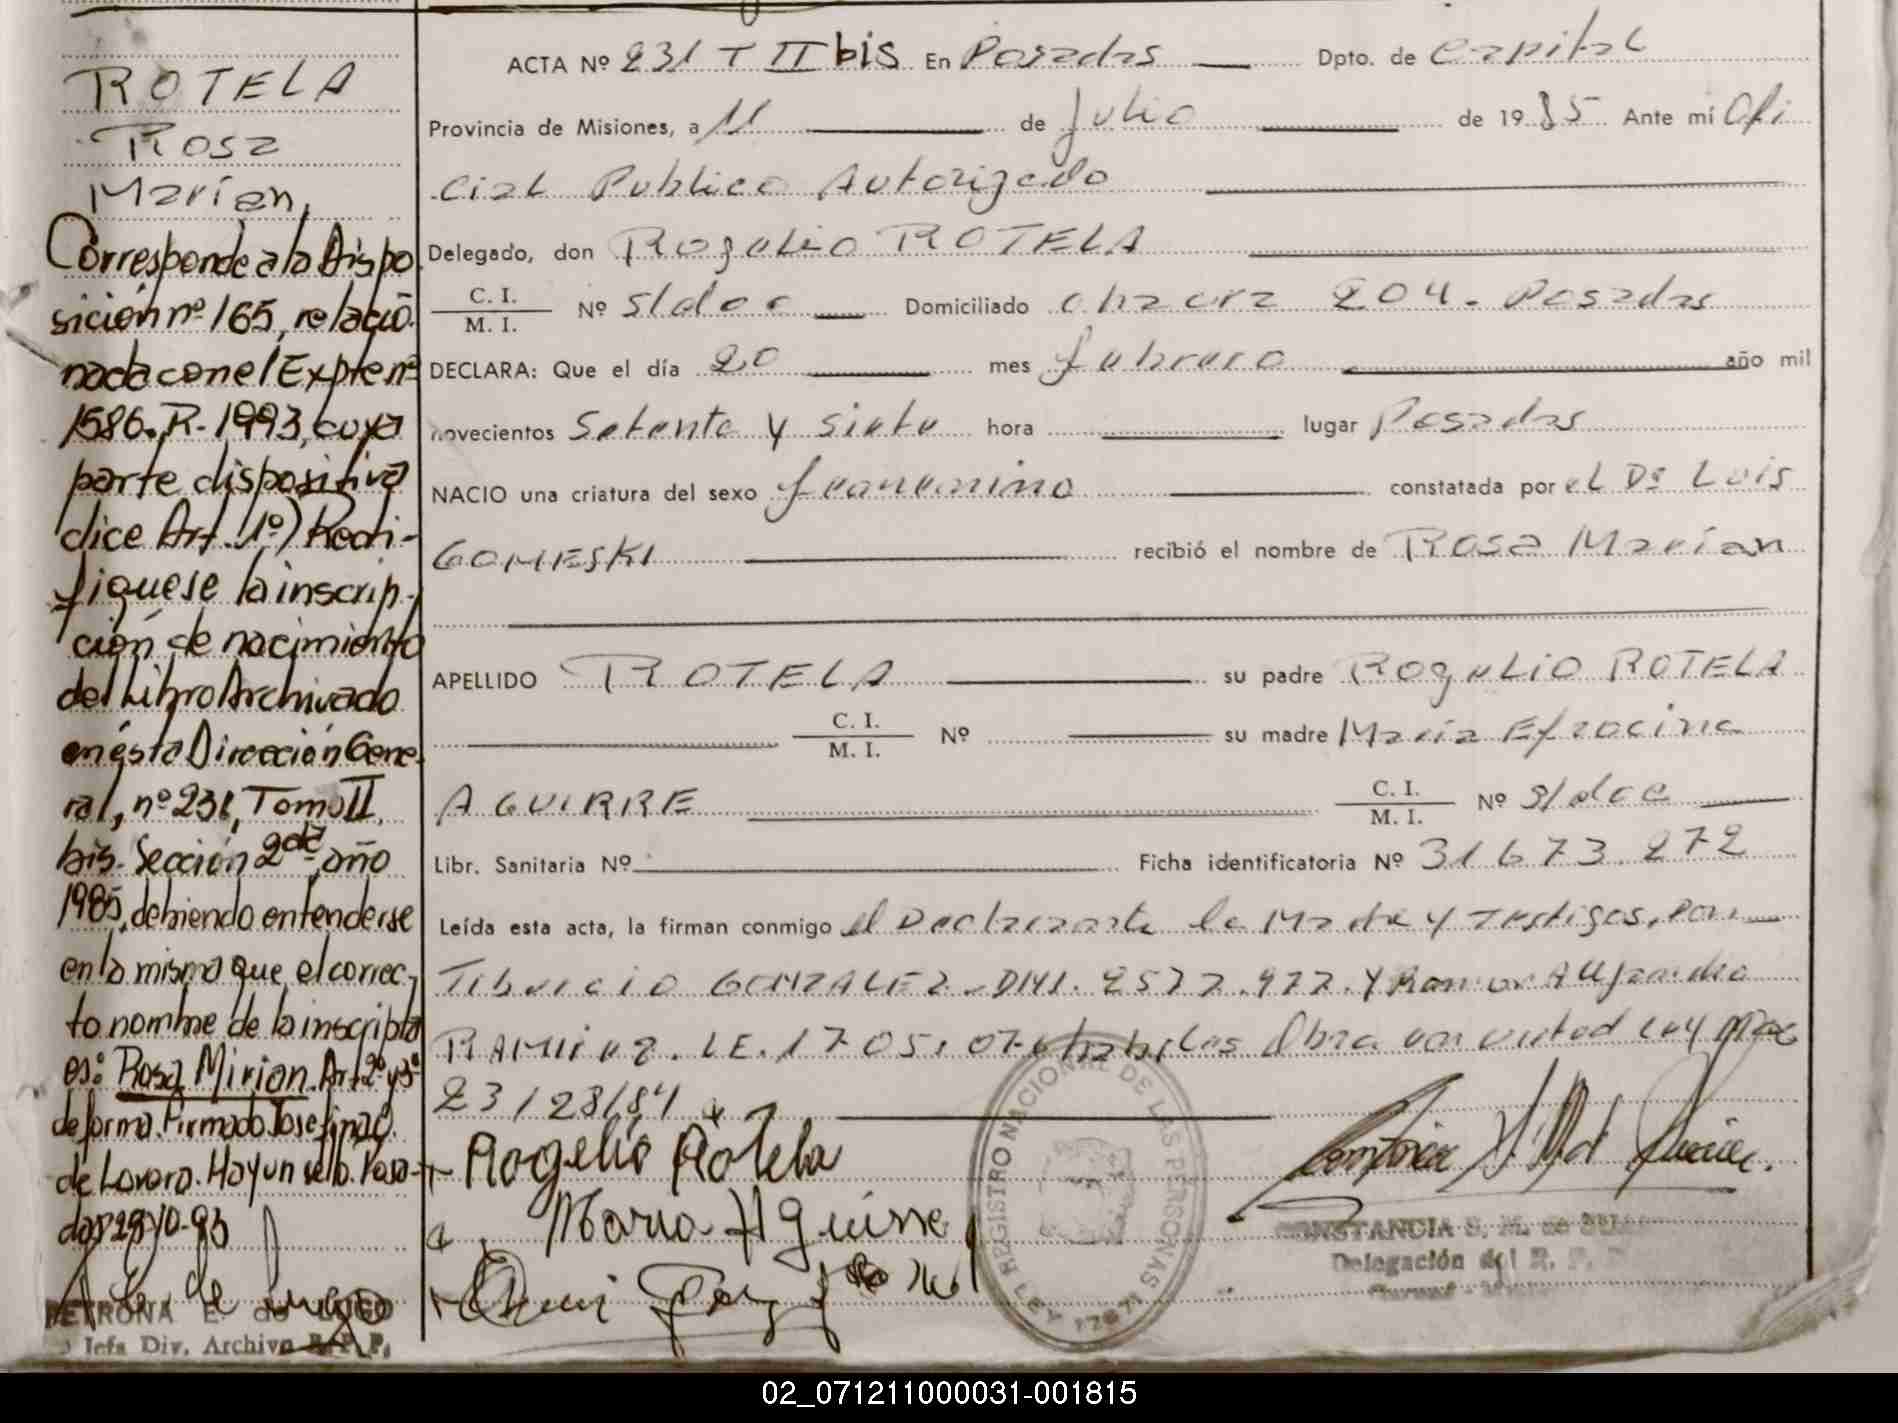 ROTELA
Rosa
Marían
Corresponde a la Dispo
sición nº 165, relacio
nada con el Expte nº
1586-R-1993, cuya
parte dispositiva
dice Art. 1º) Recti-
fiquese la inscrip-
ción de nacimiento
del Libro Archivado
en ésta Dirección Gene-
ral, nº 231, Tomo II
bis-Sección 2da año
1985, debiendo entenderse
en la misma que el correc-
to nombre de la inscripta
es: Rosa Mirian. Art 2º y 3º
de forma. Firmado Josefina C.
de Lovera. Hay un sello. Posa-
das 28-10-93
PETRONA E. de
Jefa Div. Archivo R. P. P.
ACTA Nº 231 T II bis En Posadas Dpto. de Capital
Provincia de Misiones, a 11 de Julio de 1985 Ante mí Ofi
cial Publico Autorizado
Delegado, don Rogelio ROTELA
C. I.
M. I. Nº s/doc Domiciliado chacra 204. Posadas
DECLARA: Que el día 20 mes febrero año mil
novecientos Setenta y siete hora lugar Posadas
NACIO una criatura del sexo femenino constatada por el Dr Luis
GOMESKI recibió el nombre de Rosa Marían
APELLIDO ROTELA su padre Rogelio ROTELA
C. I.
M. I. Nº su madre María Efrocina
AGUIRRE C. I.
M. I. Nº s/doc
Libr. Sanitaria Nº Ficha identificatoria Nº 31673.272
Leída esta acta, la firman conmigo el Declarante la Madre y Testigos, Don
Tiburcio GONZALEZ-DNI. 2577.977. Y Ramon Alejandro
RAMirez. LE. 1705.07 habiles Obra en virtud Ley Nac
23/28/84
Rogelio Rotela
Maria Aguirre
REGISTRO NACIONAL DE LAS PERSONAS
LEY 17671
CONSTANCIA S. M. de
Delegación del R. P.
02_071211000031-001815